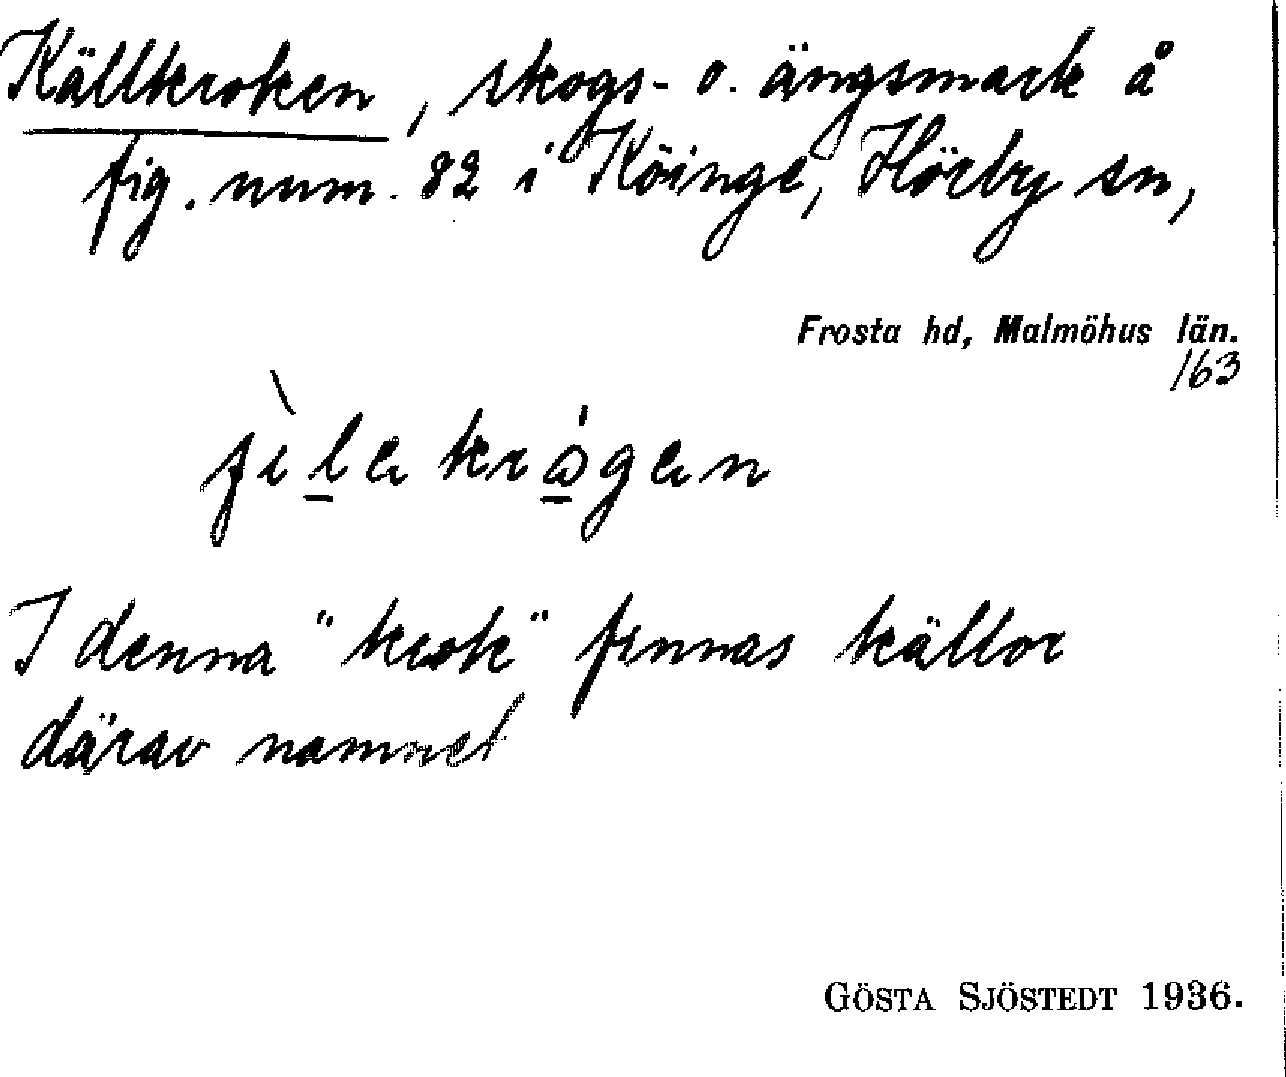 Källkroken, skogs- o. ängsmark å
fig. num. 82 i Köinge, Hörby sn,
Frosta hd, Malmöhus län.
163
I denna "krok" finnas källor
därav namnet
GÖSTA SJÖSTEDT 1936.